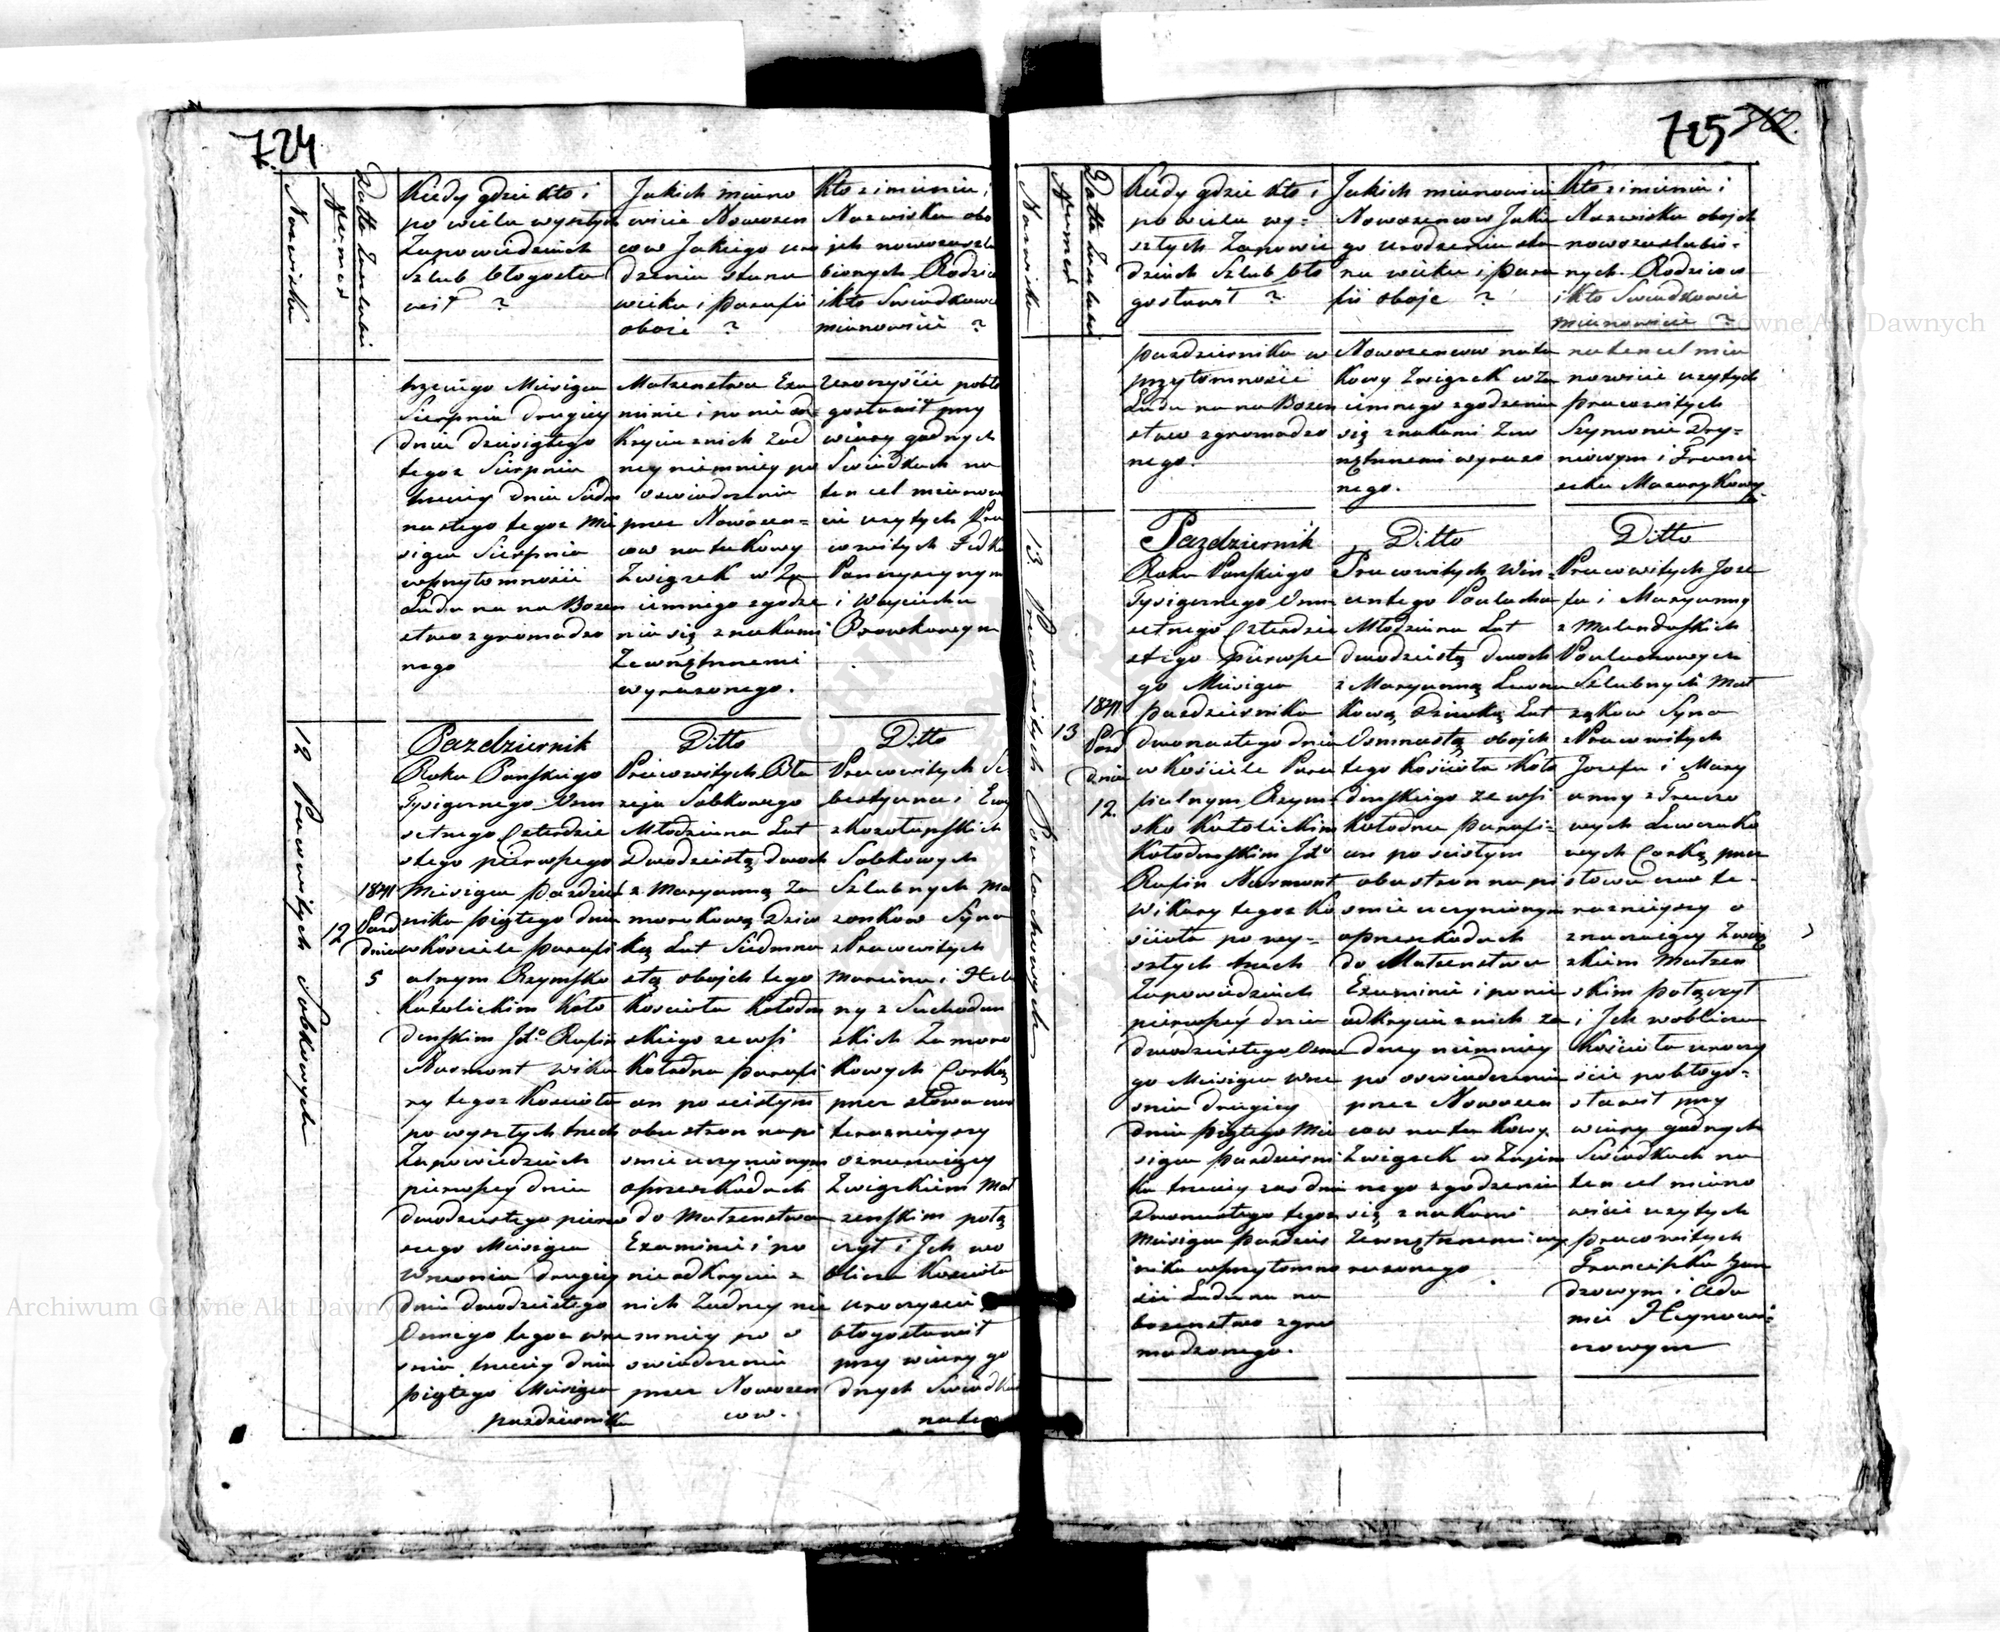 724
Nazwiska
Numer
Datta Zaslubin
Kiedy gdzie kto i
po wielu wyszłych
Zapowiedziach
Szlub błogosła
wił ?
Jakich miano
wicie Nowozen
cow Jakiego uro
dzenia stanu
wieku i parafii
oboie ?
Kto z imienia i
Nazwiska obo
jch nowozaszlu
bionych Rodzice
i kto Swiadkowie
mianowicie ?
trzeciego Miesiąca
Sierpnia drugiey
dnia dziesiątego
tegoz Sierpnia
trzeciey dnia Siedm
nastego tegoz Mie
siąca Sierpnia
wprzytomnosci
Ludu na na Bozen
stwo zgromadzo
nego
Matzenstwa Exa
minie i po nie od=
kryciu z nich zad
ney niemniey po
oswiadczeniu
przez Nowozen=
cow na takowy
Zwiącek w Za
iemnego zgodze
nia się znakami
Zewnętrznemi
wyrazonego.
Uroczyscie pobło
gosławił przy
wiary godnych
Swiadkach na
ten cel mianowi
cie uzytych Pra
cowitych Fedka
Panczyszynym
i Woyciecha
12 Prawowitych Sobkowych
12
1841
Pazd
dnia
5
Pazdziernik
Roku Panskiego
Tysiącznego Osm
setnego Czterdzie
stego pierwszego
Miesiąca pazdzier
nika piątego dnia
w kosciele parafi
alnym Rzymsko
Katolickim Koło
denskim Jdz Rafin
Narmont wika
ry tegoz Kosciola
po wyszłych trzech
Zapowiedziach
pierwszey dnia
dwudziestego pierw
szego Miesiąca
Wrzesnia drugiey
dnia dwudziestego
Osmego tegoz wrze
snia trzeciey dnia
piątego Miesiąca
pazdziernika
Ditto
Pracowitych Bła
zeja Sobkowego
Młodziana Lat
Dwadziestą dwoch
z Maryanną Za
morokową dziew
ką Lat Siedmna
stą oboich tego
Kosciola Kołoden
skiego ze wsi
Kołodna parafi
an po scisłym
obustron na pi
smie uczynionym
oprzeszkodach
do Matzenstwa
Examinie i po
nie odkryciu z
nich Zadney nie
mniey po o
swiadczeniu
przez Nowozen
cow.
Ditto
Pracowitych Se
bestyana i Ewy
z Kozołupskich
Sobkowych
Szlubnych Mał
zonkow Syna
z Pracowitych
Marcina i Hele
ny z Suchodol
skich Zamoro
kowych Corką
przez słowa czasu
teraznieyszy
oznaczaiący
Zwiąckiem Mał
zenskim połą
czył i Jch wo
bliczu Kosciola
uroczyscie
błogosławił
przy wiary go
dnych Swiadkach
na ten
725
362.
Nazwiska
Numer
Datta Zaslubin
Kiedy gdzie kto i
po wielu wy=
szłych Zapowie
dziach Szlub bło
gosławił ?
Jakich mianowicie
Nowozencow Jakie
go urodzenia sta
nu wieku i para
fii oboje ?
Kto z imienia i
Nazwiska obojch
nowozaslubio=
nych Rodzicow
i kto Swiadkowie
mianowicie ?
pazdziernika w
przytomnosci
Ludu na na Bozen
stwo zgromadzo
nego.
Nowozencow na ta
kowy Zwiącek w Za
iemnego zgodzenia
się znakami Zew
nętrznemi wyrazo
nego.
na ten cel mia
nowicie uzytych
pracowitych
Szymonia
niowym i Franci
szka Mazurykowy
13. Prawowitych Paluchowych
13
1841
Pazd
dnia
12.
Pazdziernik
Roku Panskiego
Tysiącznego Osm
setnego Czterdzie
stego Pierwsze
go Miesiąca
pazdziernika
dwunastego dnia
w Kosciele Para
fialnym Rzym=
sko Katolickim
Kołodenskim Jdz
Rafin Narmont
Wikary tegoz Ko
sciola po wy=
szłych trzech
Zapowiedziach
pierwszey dnia
dwudziestego Osme
go Miesiąca wrze
snia drugiey
dnia piątego Mie
siąca pazdzierni
ka trzeciey zas dnia
dwunastego tegoz
Miesiąca pazdzier
nika w przytomno
sci Ludu na na
bozenstwo zgro
madzonego.
Ditto
Pracowitych Win=
centego Palucha
Młodziana Lat
dwudziestą dwoch
z Maryanną Lewcu
kową Dziewką Lat
Osmnastą obojch
tego Kosciola Koło
denskiego ze wsi
Kołodna parafi=
an po scisłym
obustron na pi
smie uczynionym
oprzeszkodach
do Matzenstwa
Examinie i po nie
odkryciu z nich za
dney niemniey
po oswiadczeniu
przez Nowozen
cow na takowy
Zwiącek w Zaiem
nego zgodzenia
się znakami
Zewnętrznemi wy
razonego
Ditto
Pracowitych Joze
fa i Maryanny
Paluchowych
Szlubnych Mał
ząkow Syna
z Pracowitych
Jozefa i Mary
anny z Tracze
wych Lewczuko
wych Corką przez
słowa czas te=
raznieyszy o
znaczaiący Zwią
zkiem Matzen
skim połączył
i Jch wobliczu
Kosciola uroczy
scie pobłogo=
sławił przy
wiary godnych
Swiadkach na
ten cel miano
wicie uzytych
pracowitych
Franciszka
i Ada
mie